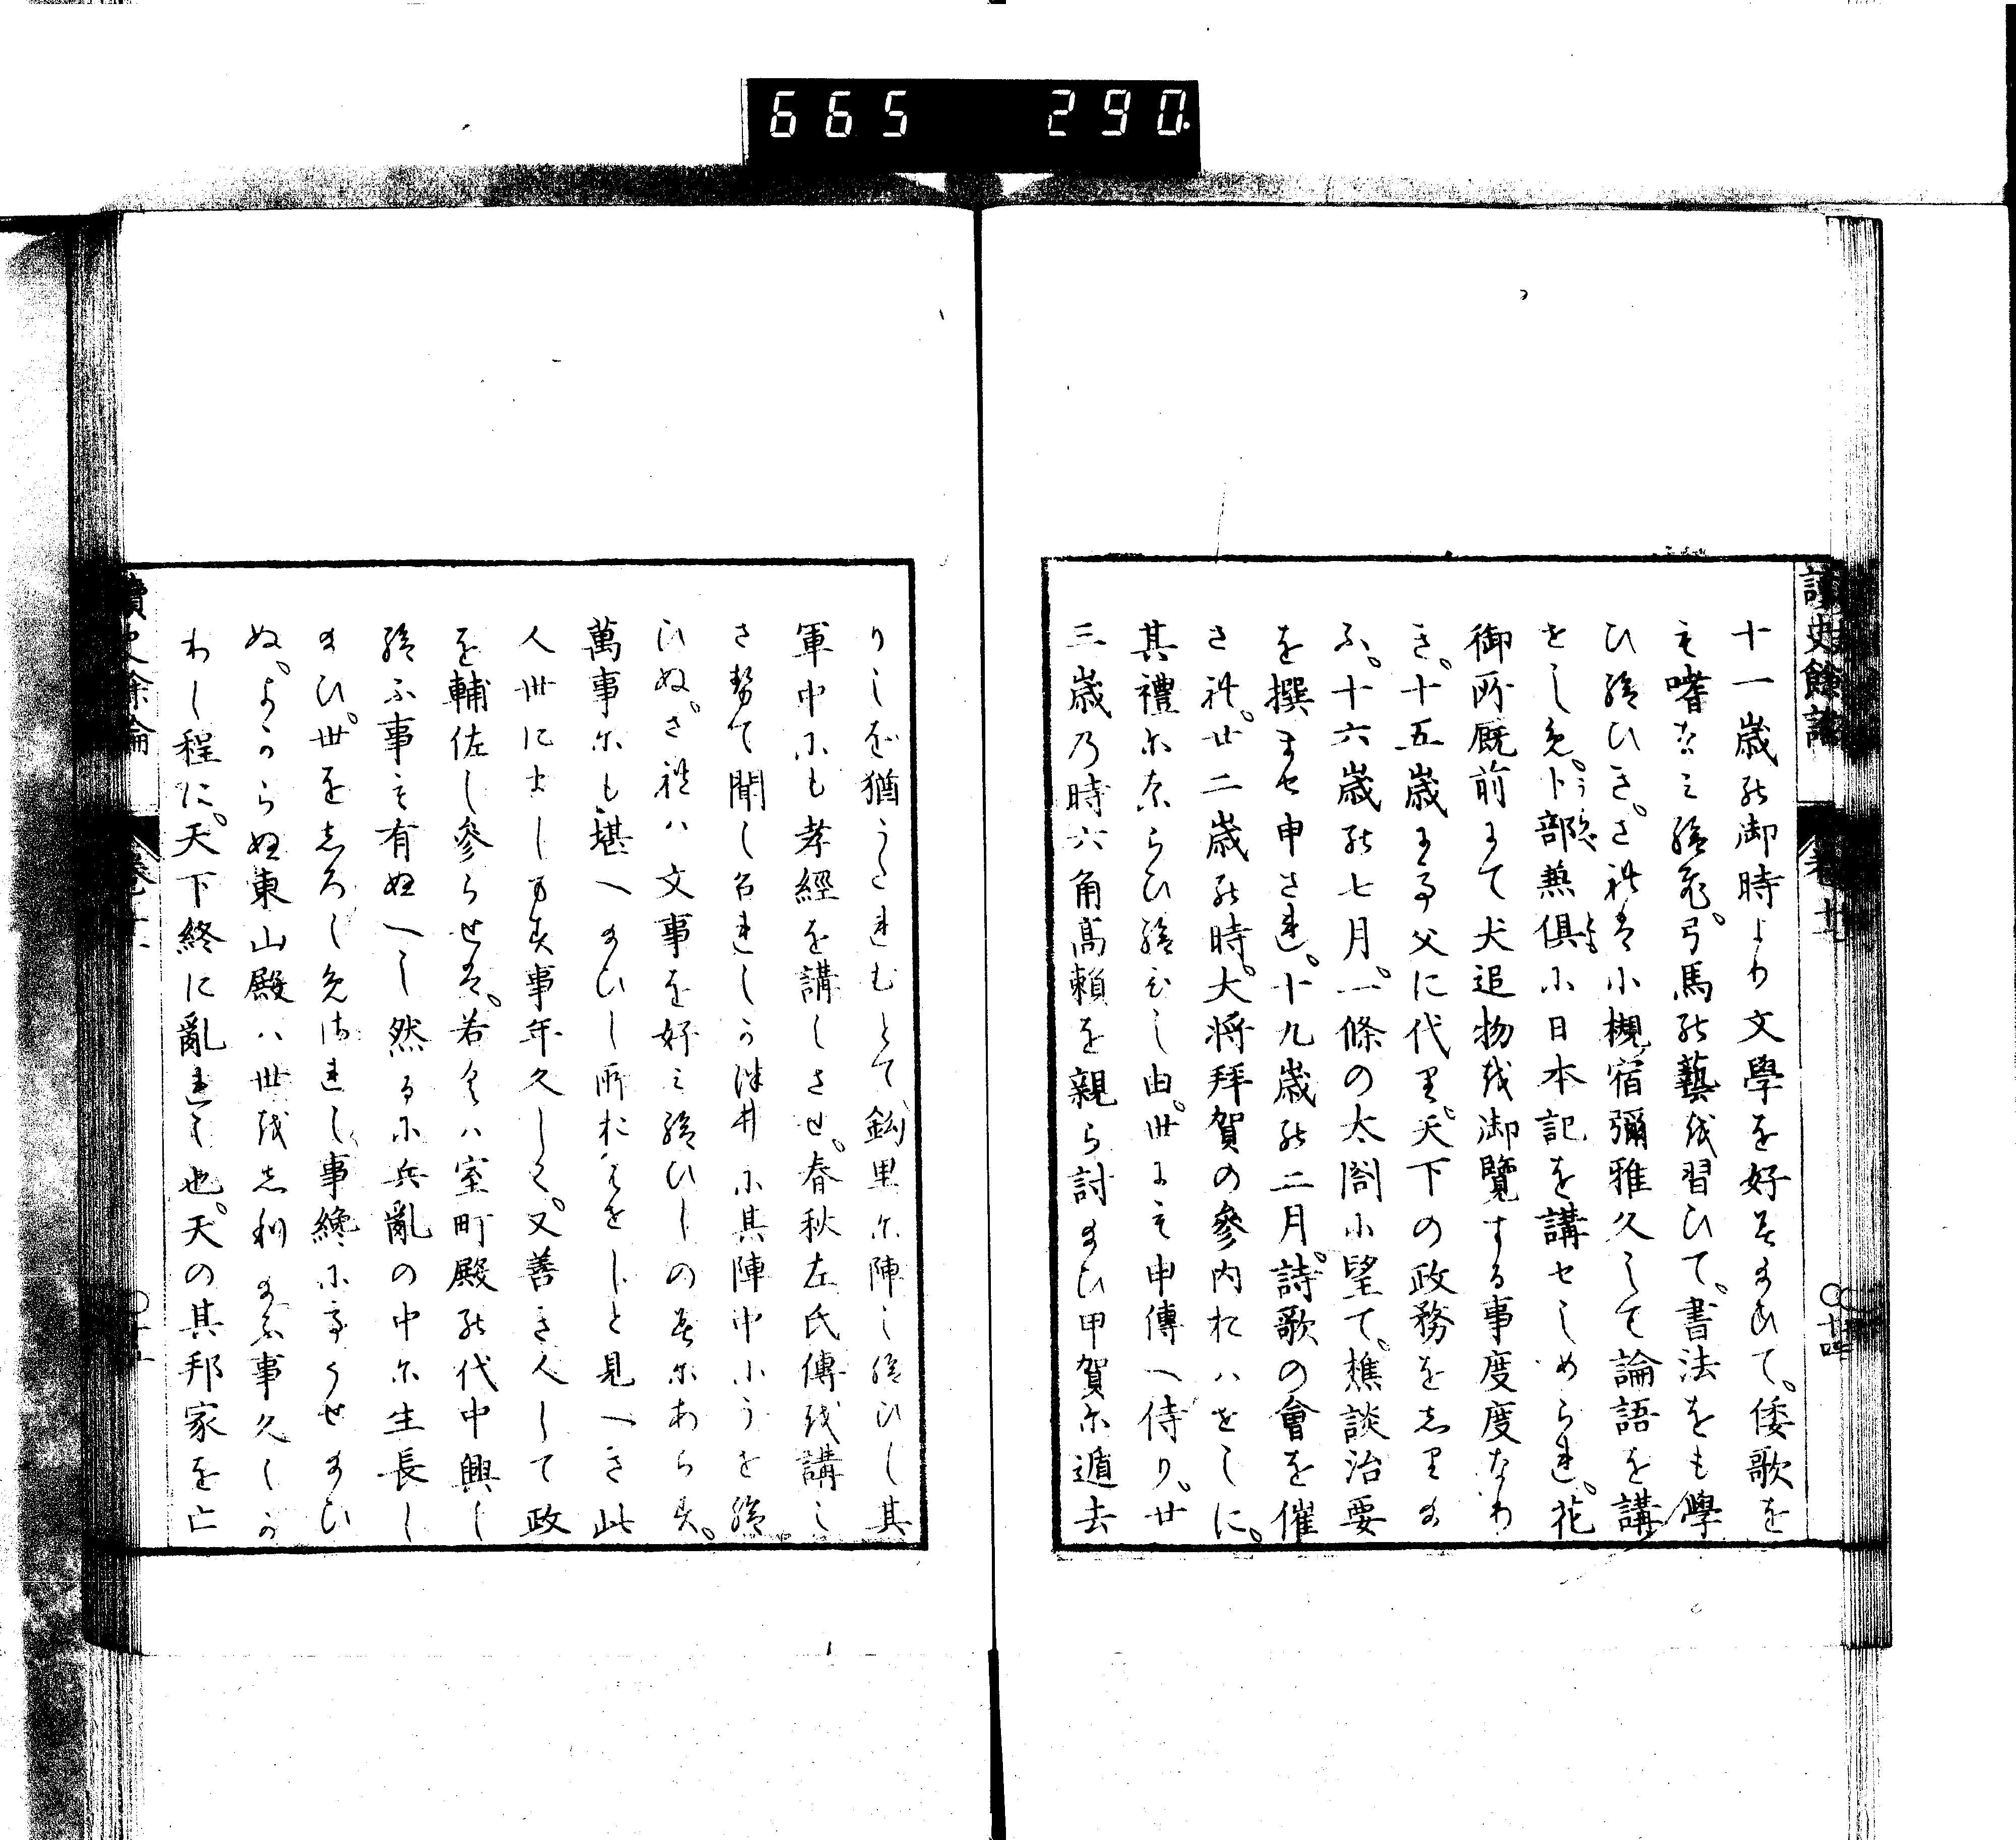 665 290
讀史餘論 卷十一 〇十四
十一歳の御時より文學を好そ玉ひて。倭歌を
も嗜なミ給ひ。弓馬の藝を習ひて。書法をも學
ひ給ひき。されは小槻宿彌雅久して論語を講
をしめ。卜部兼倶に日本記を講せしめられ。花
御所厩前にて犬追物を御覽する事度度なり
き。十五歳にて父に代り。天下の政務をしり玉
ふ。十六歳の七月。一條の太閤に望て。樵談治要
を撰ませ申され。十九歳の二月。詩歌の會を催
され。廿二歳の時。大将拜賀の參内おハせしに。
其禮にならひ給ひし由。世にも申傳へ侍り。廿
三歳乃時六角高頼を親ら討玉ひ甲賀に遁去
りしを猶うたれむとて鈎里に陣し給ひし其
軍中にも孝經を講しさせ。春秋左氏傳を講し
させて聞し召れしか終に其陣中にうせ給
ひぬ。されハ文事を好ミ給ひしのミにあらす。
萬事にも堪へ玉ひし所おハせしと見へき此
人世にまします事年久しく。又善き人して政
を輔佐し參らせは。若くハ室町殿の代中興し
給ふ事も有ぬへし然るに兵亂の中に生長し
玉ひ。世をしろしめされし事纔にてうせ玉ひ
ぬ。よからぬ東山殿ハ世をしり玉ふ事久しか
りし程に。天下終に亂れし也。天の其邦家を亡
讀史餘論 卷十一 〇十五